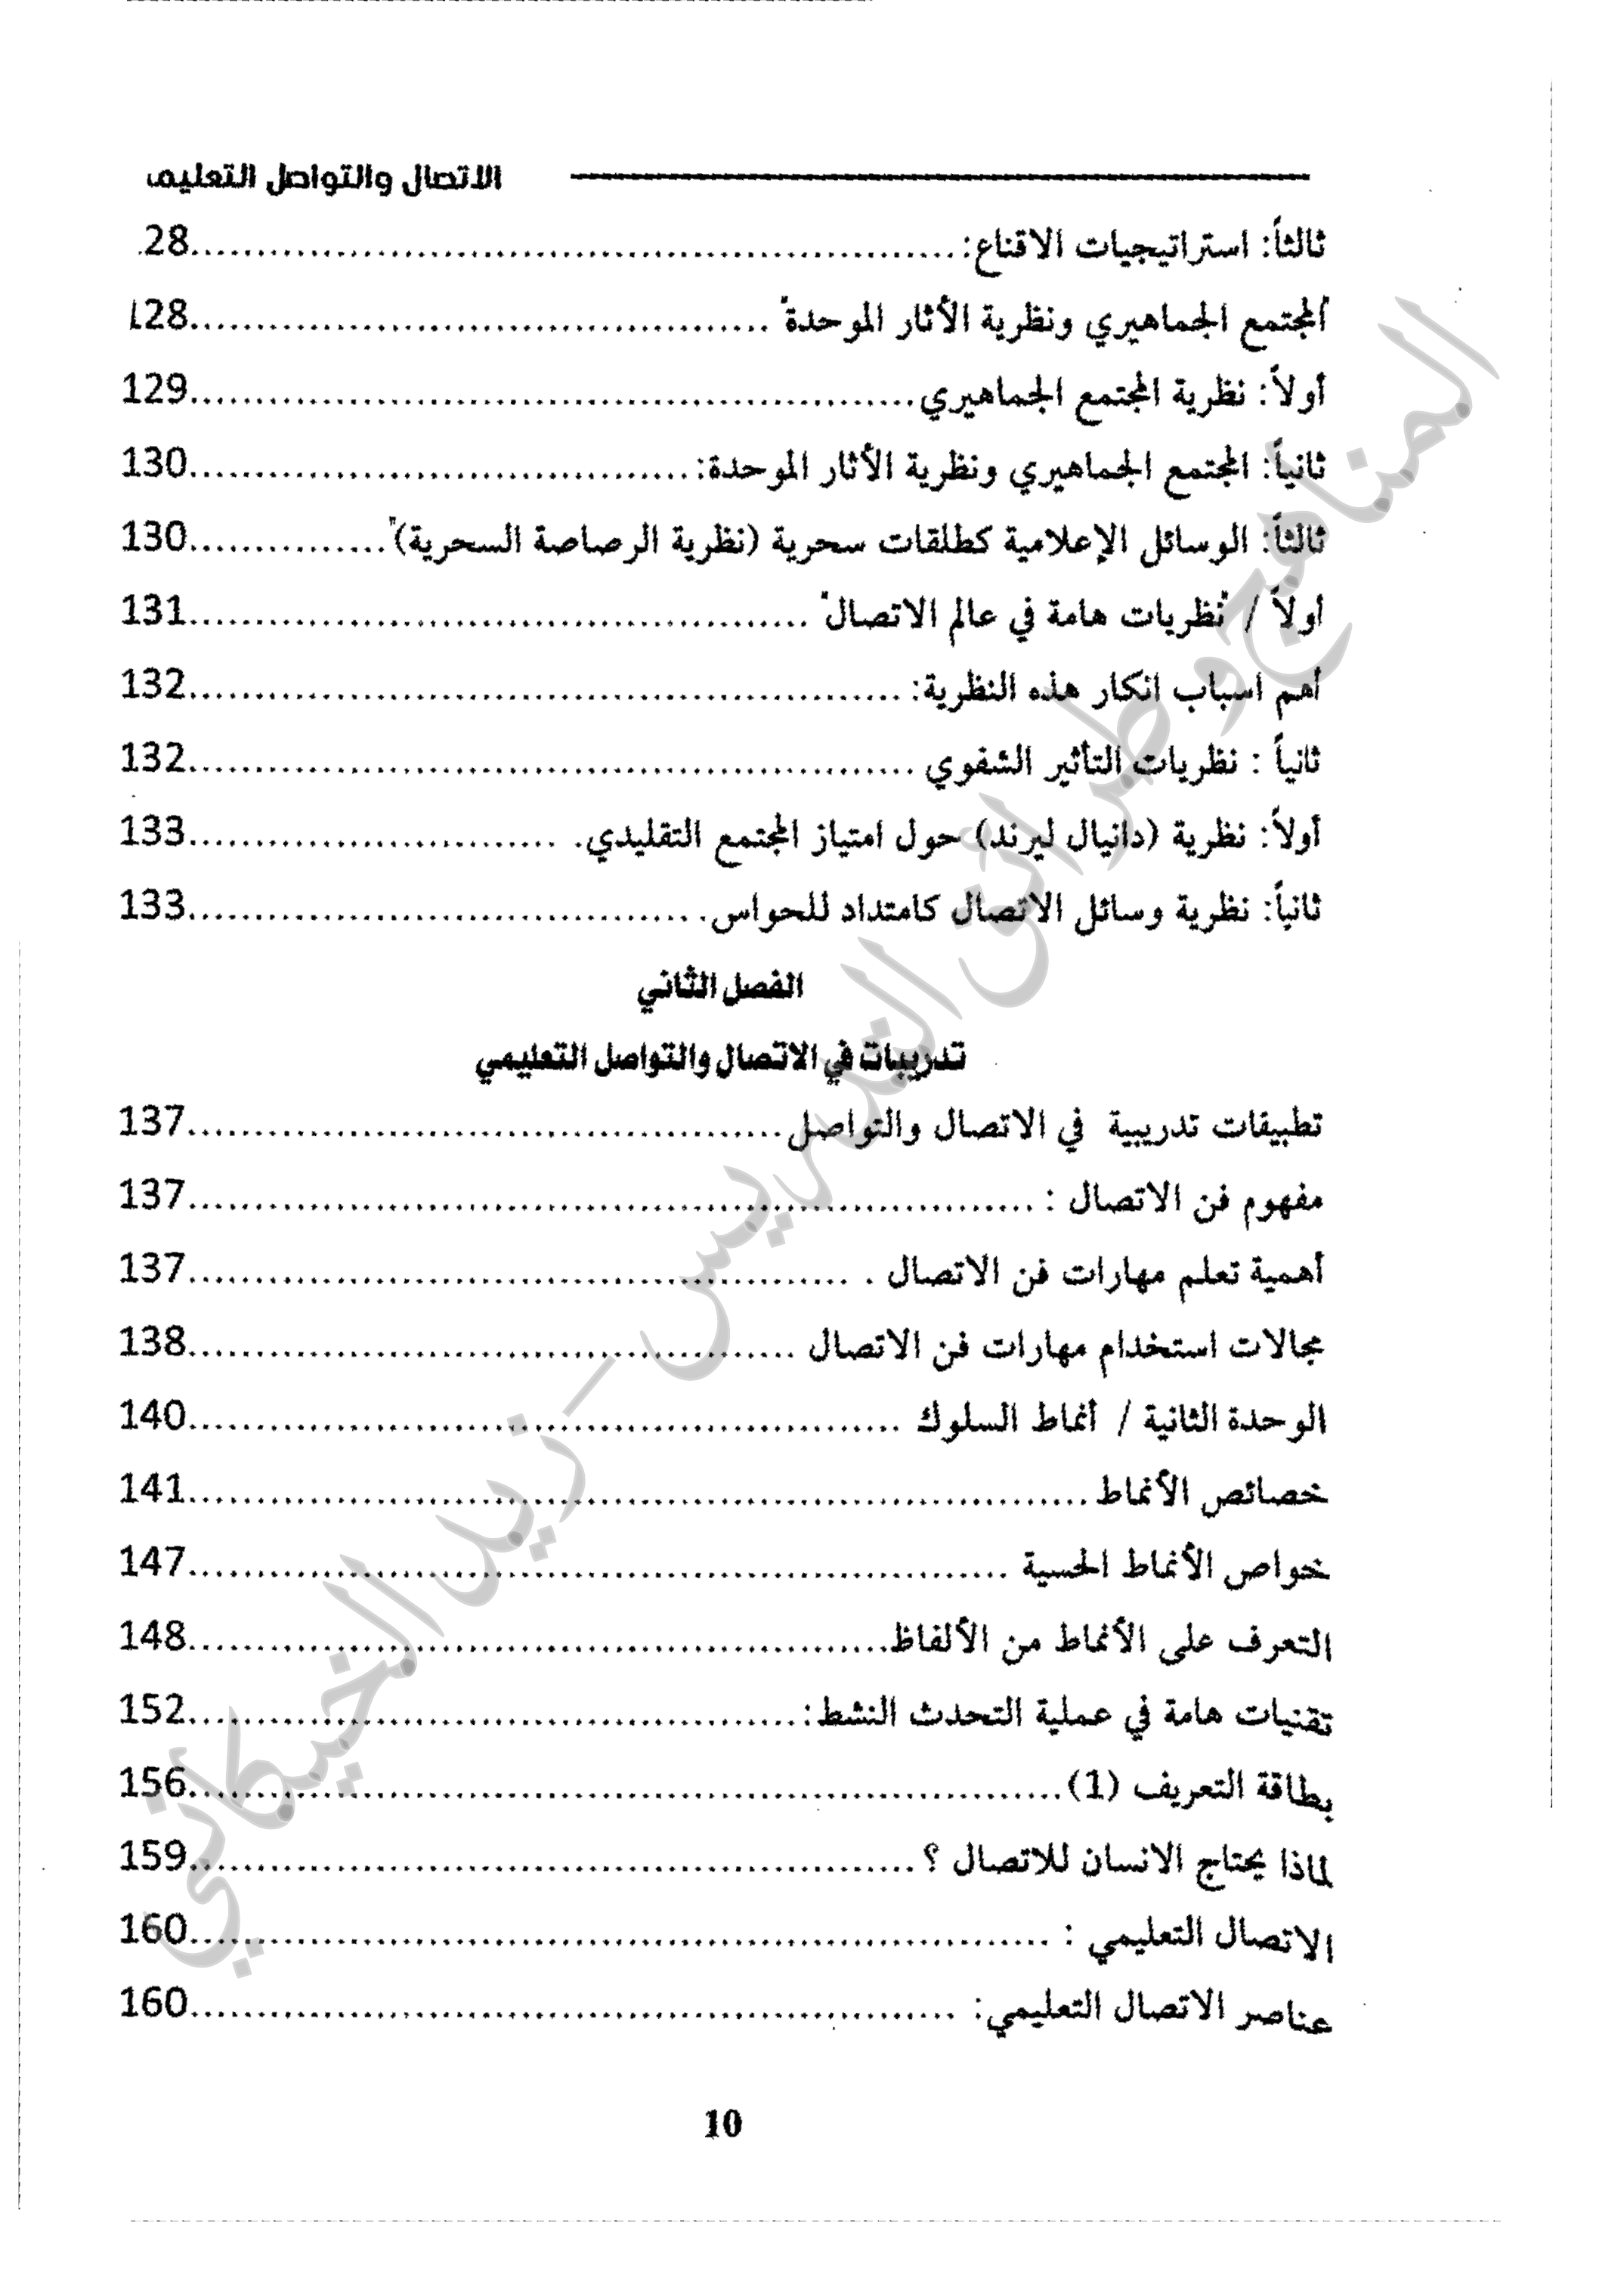 الاتصال والتواصل التعليمي
ثالثاً: استراتيجيات الاقناع:..........................................................28
"المجتمع الجماهيري ونظرية الأثار الموحدة" ............................................128
أولاً: نظرية المجتمع الجماهيري.......................................................129
ثانياً: المجتمع الجماهيري ونظرية الأثار الموحدة:......................................130
ثالثاً: الوسائل الإعلامية كطلقات سحرية (نظرية الرصاصة السحرية)"...............130
أولاً / "نظريات هامة في عالم الاتصال" ...............................................131
أهم اسباب انكار هذه النظرية: ......................................................132
ثانياً : نظريات التأثير الشفوي .......................................................132
أولاً: نظرية (دانيال ليرند) حول امتياز المجتمع التقليدي. ............................133
ثانياً: نظرية وسائل الاتصال كامتداد للحواس. .......................................133
الفصل الثاني
تدريبات في الاتصال والتواصل التعليمي
تطبيقات تدريبية في الاتصال والتواصل.............................................137
مفهوم فن الاتصال : ................................................................137
أهمية تعلم مهارات فن الاتصال . ..................................................137
مجالات استخدام مهارات فن الاتصال ..............................................138
الوحدة الثانية / أنماط السلوك ......................................................140
خصائص الأنماط....................................................................141
خواص الأنماط الحسية ..............................................................147
التعرف على الأنماط من الألفاظ.....................................................148
تقنيات هامة في عملية التحدث النشط:..............................................152
بطاقة التعريف (1)..................................................................156
لماذا يحتاج الانسان للاتصال ؟.......................................................159
الاتصال التعليمي : .................................................................160
عناصر الاتصال التعليمي: ..........................................................160
10
المناهج وطرائق التدريس - زيد الخيكاني